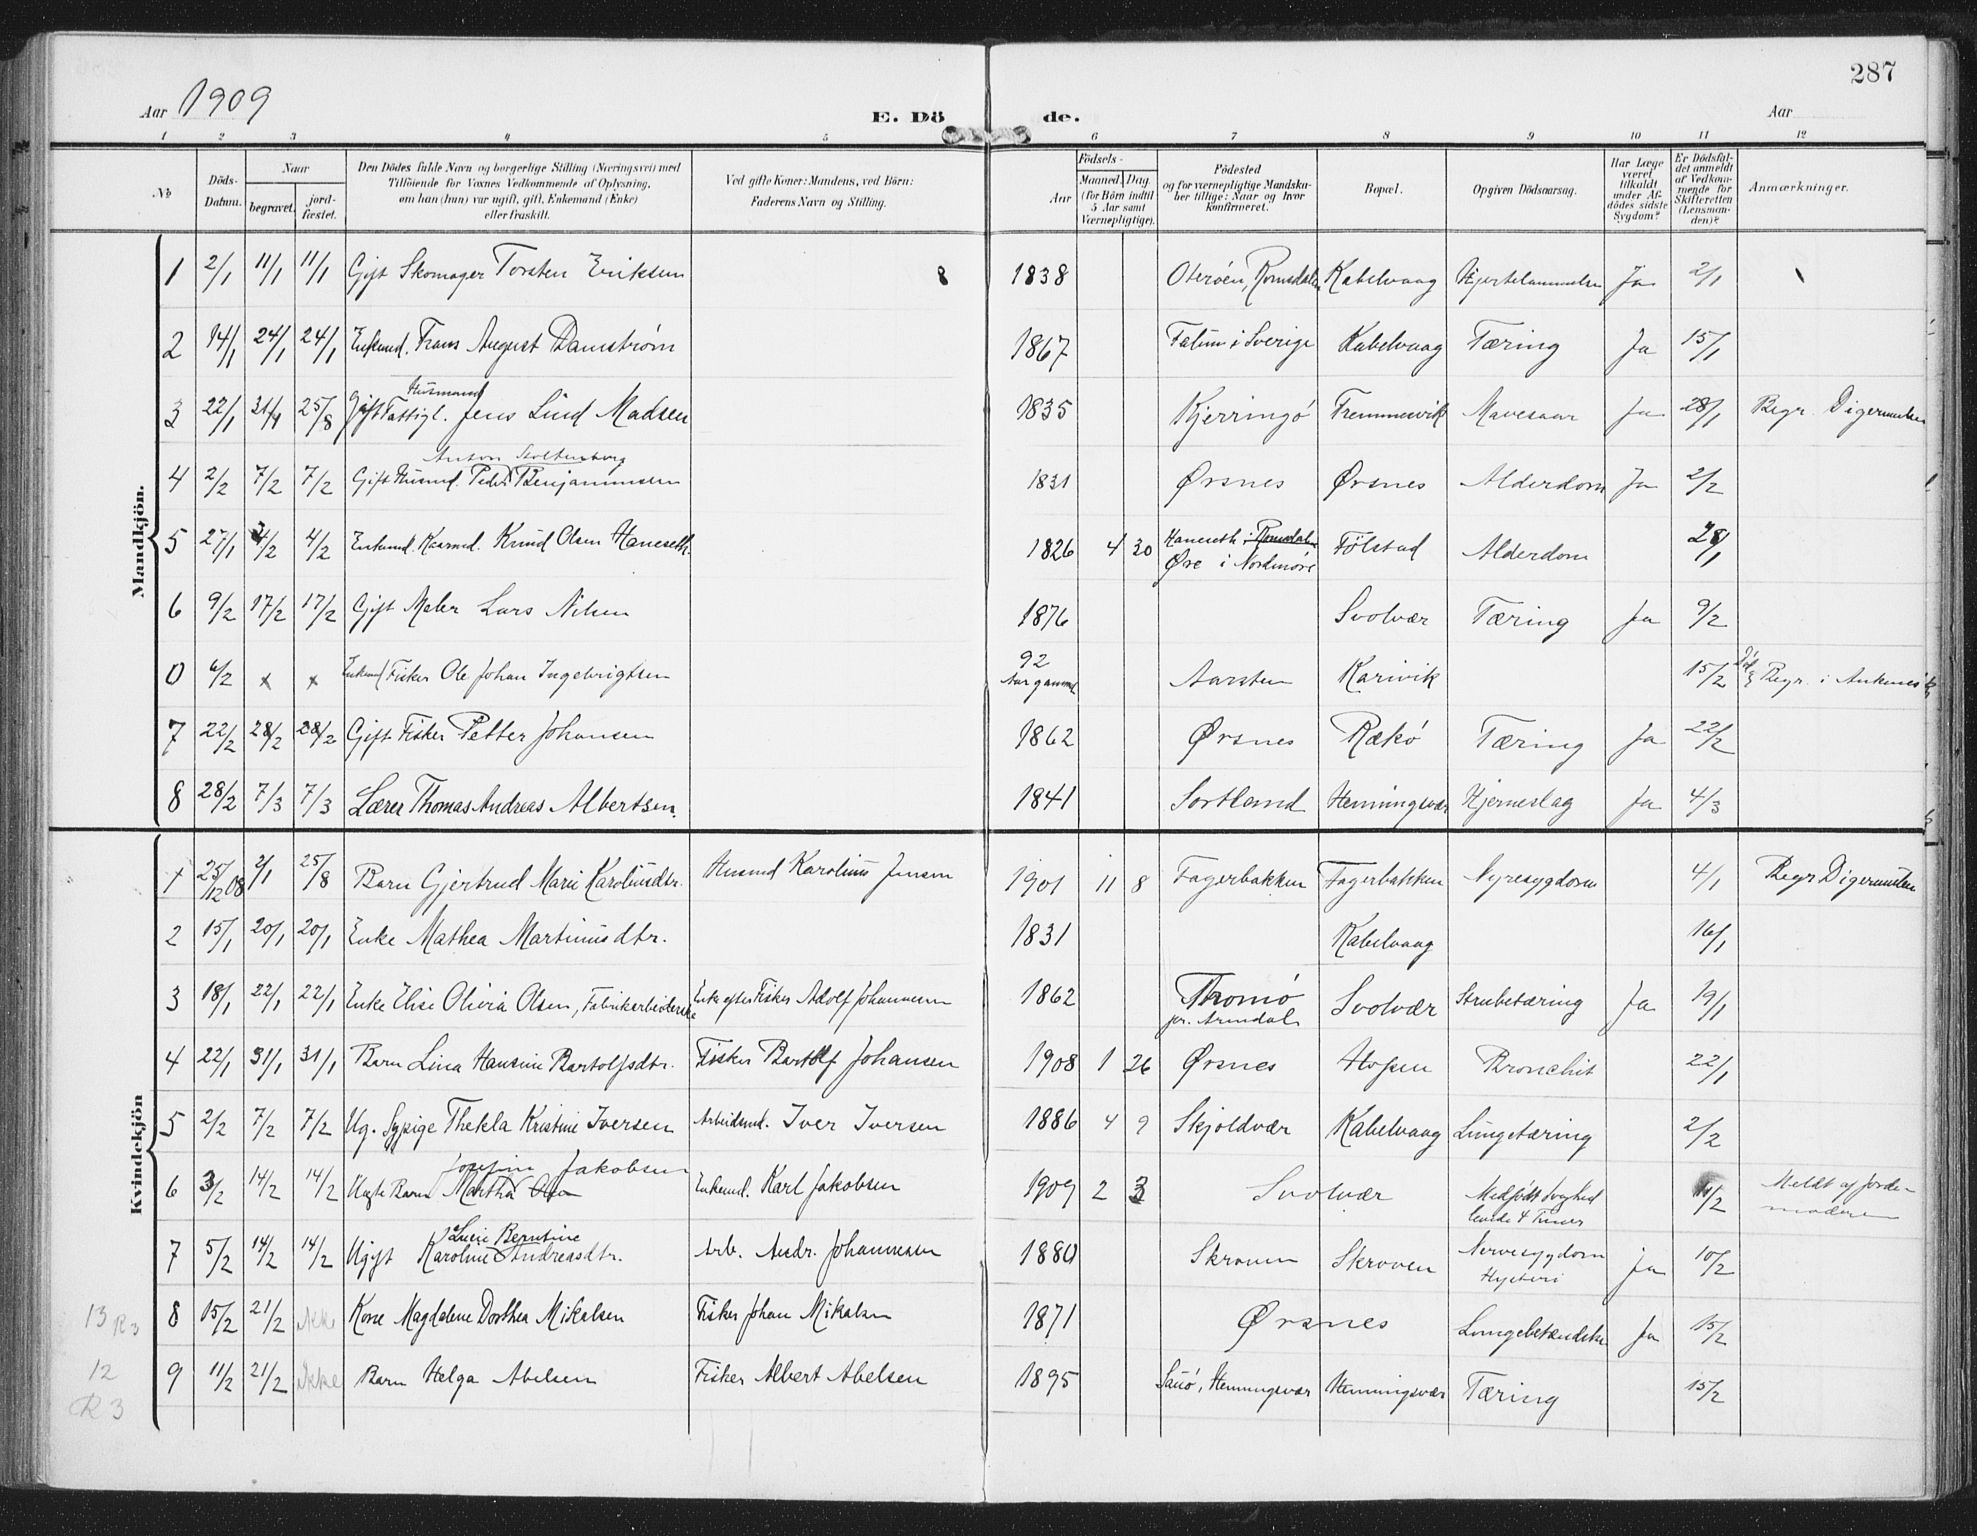 287
Aar 1909
E. Dö de.
Aar
1 2 3 4 5 6 7 8 9 10 11 12
№
Döds-Datum.
Naar
begravet.
jord-fæstet.
Den Dödes fulde Navn og borgerlige Stilling (Næringsvei) med
Tilföiende for Voxnes Vedkommende af Oplysning,
om han (hun) var ugift, gift, Enkemand (Enke)
eller fraskilt.
Ved gifte Koner: Mandens, ved Börn:
Faderens Navn og Stilling.
Födsels-
Aar
Maaned. Dag.
(for Börn indtil
5 Aar samt
Værnepligtige).
Födested
og for værnepligtige Mandska-
ber tillige: Naar og hvor
konfirmeret.
Bopæl.
Opgiven Dödsaarsag.
Har Læge
været
tilkaldt
under Af-
dödes sidste
Sygdom?
Er Dödsfal-
det anmeldt
af Vedkom-
mende for
Skifteretten
(Lensman-
den)?
Anmærkninger.
Mandkjön.
1 2/1 11/1 11/1 Gift Skomager Torsten Eriksen 1838 Oterøen, Romsdalen Kabelvaag Hjertelammelse Ja 2/1
2 14/1 24/1 24/1 Enkemd. Frans August Damstrøm 1867 Falun i Sverige Kabelvaag Tæring Ja 15/1
Husmand
3 22/1 31/1 25/8 Gift Fattigl. Jens Lind Madsen 1835 Kjerringø Fremmesvik Mavesaar Ja 28/1 Begr. Digermulen
Anton Stoltenberg
4 2/2 7/2 7/2 Gift Husmd. Peder Benjaminsen 1831 Ørsnes Ørsnes Alderdom Ja 2/2
5 27/1 4/2 4/2 Enkemd. Kaarmd. Knud Olsen Haneseth 1826 4 30 Haneseth i Romsdal Følstad Alderdom 28/1
Øre i Nordmøre
6 9/2 17/2 17/2 Gift Maler Lars Nilsen 1876 Svolvær Tæring Ja 9/2
0 4/2 x x Enkemd Fisker Ole Johan Ingebrigtsen 92 Aar gammel Aarsten Karivik 15/2 Begr. i Ankenes
7 22/2 28/2 28/2 Gift Fisker Petter Johansen 1862 Ørsnes Rækø Tæring Ja 22/2
8 28/2 7/3 7/3 Lærer Thomas Andreas Albertsen. 1841 Sortland Henningsvær Hjerneslag Ja 4/3
Kvindekjön
1 25/12 08 2/1 25/8 Barn Gjertrud Marie Karolinsdtr. Husmd Karolius Jensen 1901 11 8 Fagerbakken Fagerbakken Nyresygdom 4/1 Begr Digermulen
2 15/1 20/1 20/1 Enke Mathea Martinusdtr. 1831 Kabelvaag 16/1
3 18/1 22/1 22/1 Enke Elise Olivia Olsen, Fabrikarbeiderske Enke efter Fisker Adolf Johannesen 1862 Thromø Svolvær Strubetæring Ja 19/1
pr. Arendal
4 22/1 31/1 31/1 Barn Lina Hansine Bartolfsdtr. Fisker Bartolf Johansen 1908 1 26 Ørsnes Hopen Bronchit 22/1
5 2/2 7/2 7/2 Ug. Sypige Thekla Kristine Iversen Arbeidsmd. Iver Iversen 1886 4 9 Skjoldvær Kabelvaag Lungetæring 2/2
Josefine Jakobsen
6 3/2 14/2 14/2 Uægte Barn Martha Enkemd. Karl Jakobsen 1909 2 3 Svolvær Medfødt Svaghed 11/2 Meldt af Jorde-
levede 4 Timer moderen
Lucie Berntine
7 5/2 14/2 14/2 Ugift Karoline Andreasdtr. Arb. Andr. Johannesen 1880 Skroven Skroven Nervesygdom Ja 10/2
Hysteri
13 R3 8 15/2 21/2 Ikke Kone Magdalene Dorthea Mikalsen Fisker Johan Mikalsen 1871 Ørsnes Lungebetændelse Ja 15/2
12 9 11/2 21/2 Ikke Barn Helga Abelsen Fisker Albert Abelsen 1895 Sauø, Henningsvær Henningsvær Tæring 15/2
R 3